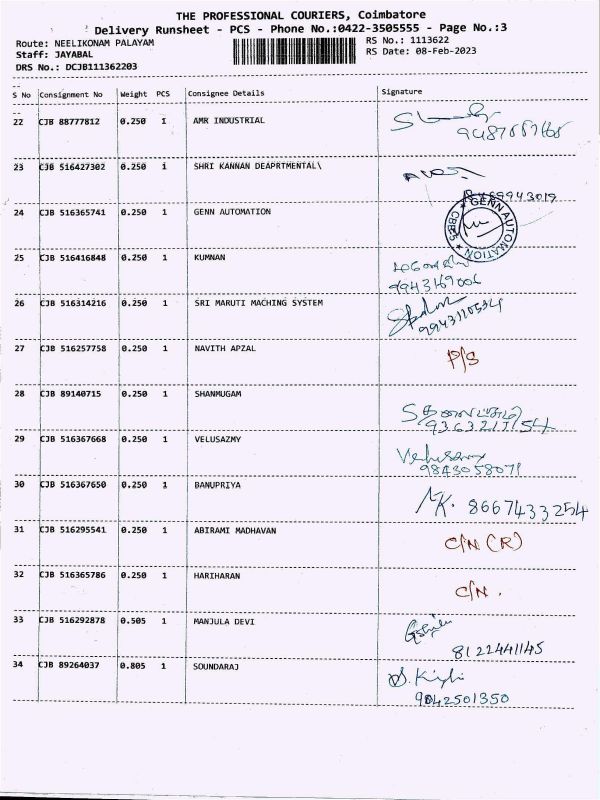 THE PROFESSIONAL COURIERS, Coimbatore
Delivery Runsheet - PCS - Phone No.:0422-3505555 - Page No.:3
Route: NEELIKONAM PALAYAM RS No.: 1113622
Staff: JAYABAL RS Date: 08-Feb-2023
DRS No.: DCJB111362203
S No Consignment No Weight PCS Consignee Details Signature
22 CJB 88777812 0.250 1 AMR INDUSTRIAL
23 CJB 516427302 0.250 1 SHRI KANNAN DEAPRTMENTAL\
24 CJB 516365741 0.250 1 GENN AUTOMATION GENN AUTOMATION
25 CJB 516416848 0.250 1 KUMNAN
9943169006
26 CJB 516314216 0.250 1 SRI MARUTI MACHING SYSTEM
9943120534
27 CJB 516257758 0.250 1 NAVITH APZAL P/S
28 CJB 89140715 0.250 1 SHANMUGAM
29 CJB 516367668 0.250 1 VELUSAZMY Velusamy
9843058071
30 CJB 516367650 0.250 1 BANUPRIYA
8667433254
31 CJB 516295541 0.250 1 ABIRAMI MADHAVAN C/N (R)
32 CJB 516365786 0.250 1 HARIHARAN C/N.
33 CJB 516292878 0.505 1 MANJULA DEVI
8122441145
34 CJB 89264037 0.805 1 SOUNDARAJ
9042501350